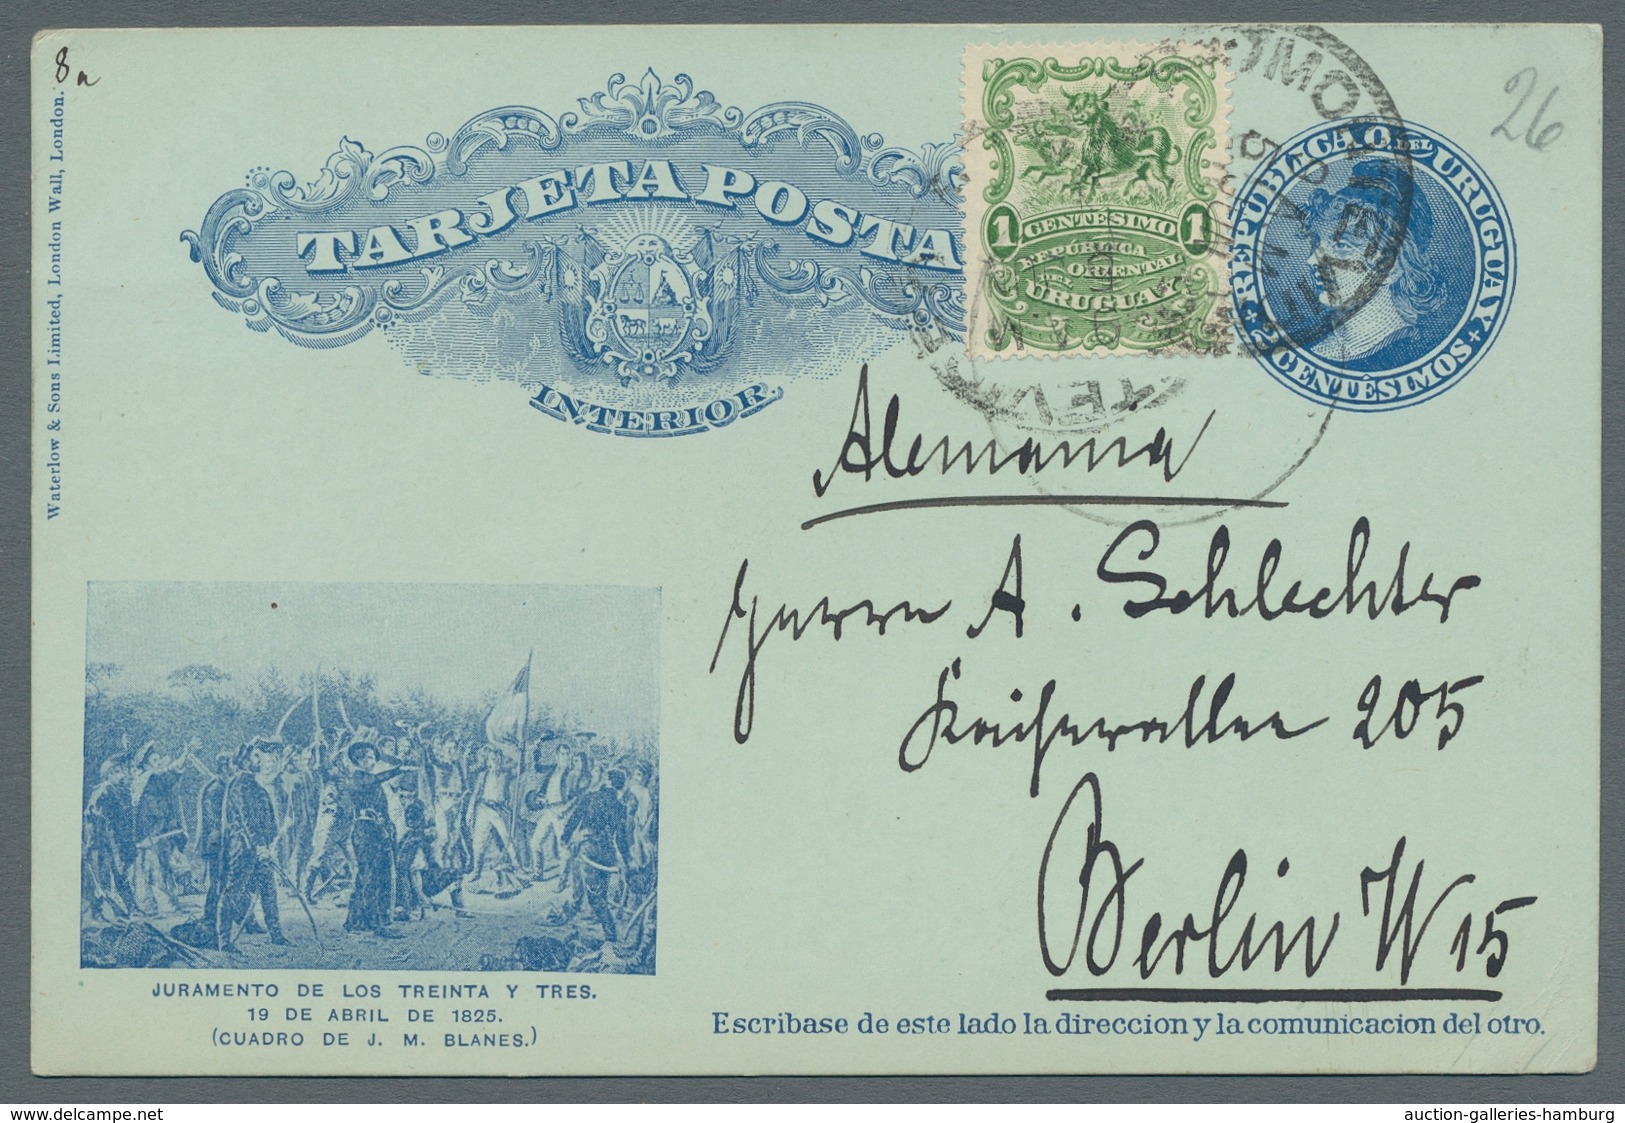 8a
Waterlow & Sons Limited, London Wall, London.
TARJETA POSTA
INTERIOR.
1 CENTESIMO 1
REPÚBLICA
ORIENTAL
DEL
URUGUAY
REPÚBLICA O. DEL URUGUAY
2 CENTÉSIMOS
26
Alemania
Herrn A. Schlechter
Kaiserallee 205
Berlin W 15
JURAMENTO DE LOS TREINTA Y TRES.
19 DE ABRIL DE 1825.
(CUADRO DE J. M. BLANES.)
Escribase de este lado la direccion y la comunicacion del otro.
www.delcampe.net
auction-galleries-hamburg